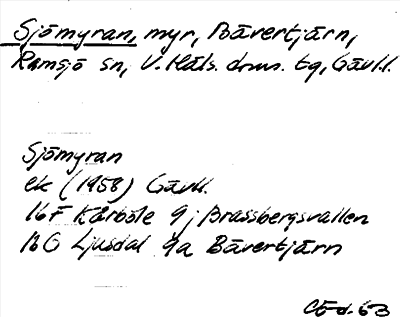 Sjömyran, myr, Bävertjärn,
Ramsjö sn, V. Häls. dms. tg, Gävl.l.
Sjömyran
ek (1958) Gävll.
16F Kårböle 9j Brassbergsvallen
16G Ljusdal 9a Bävertjärn
63